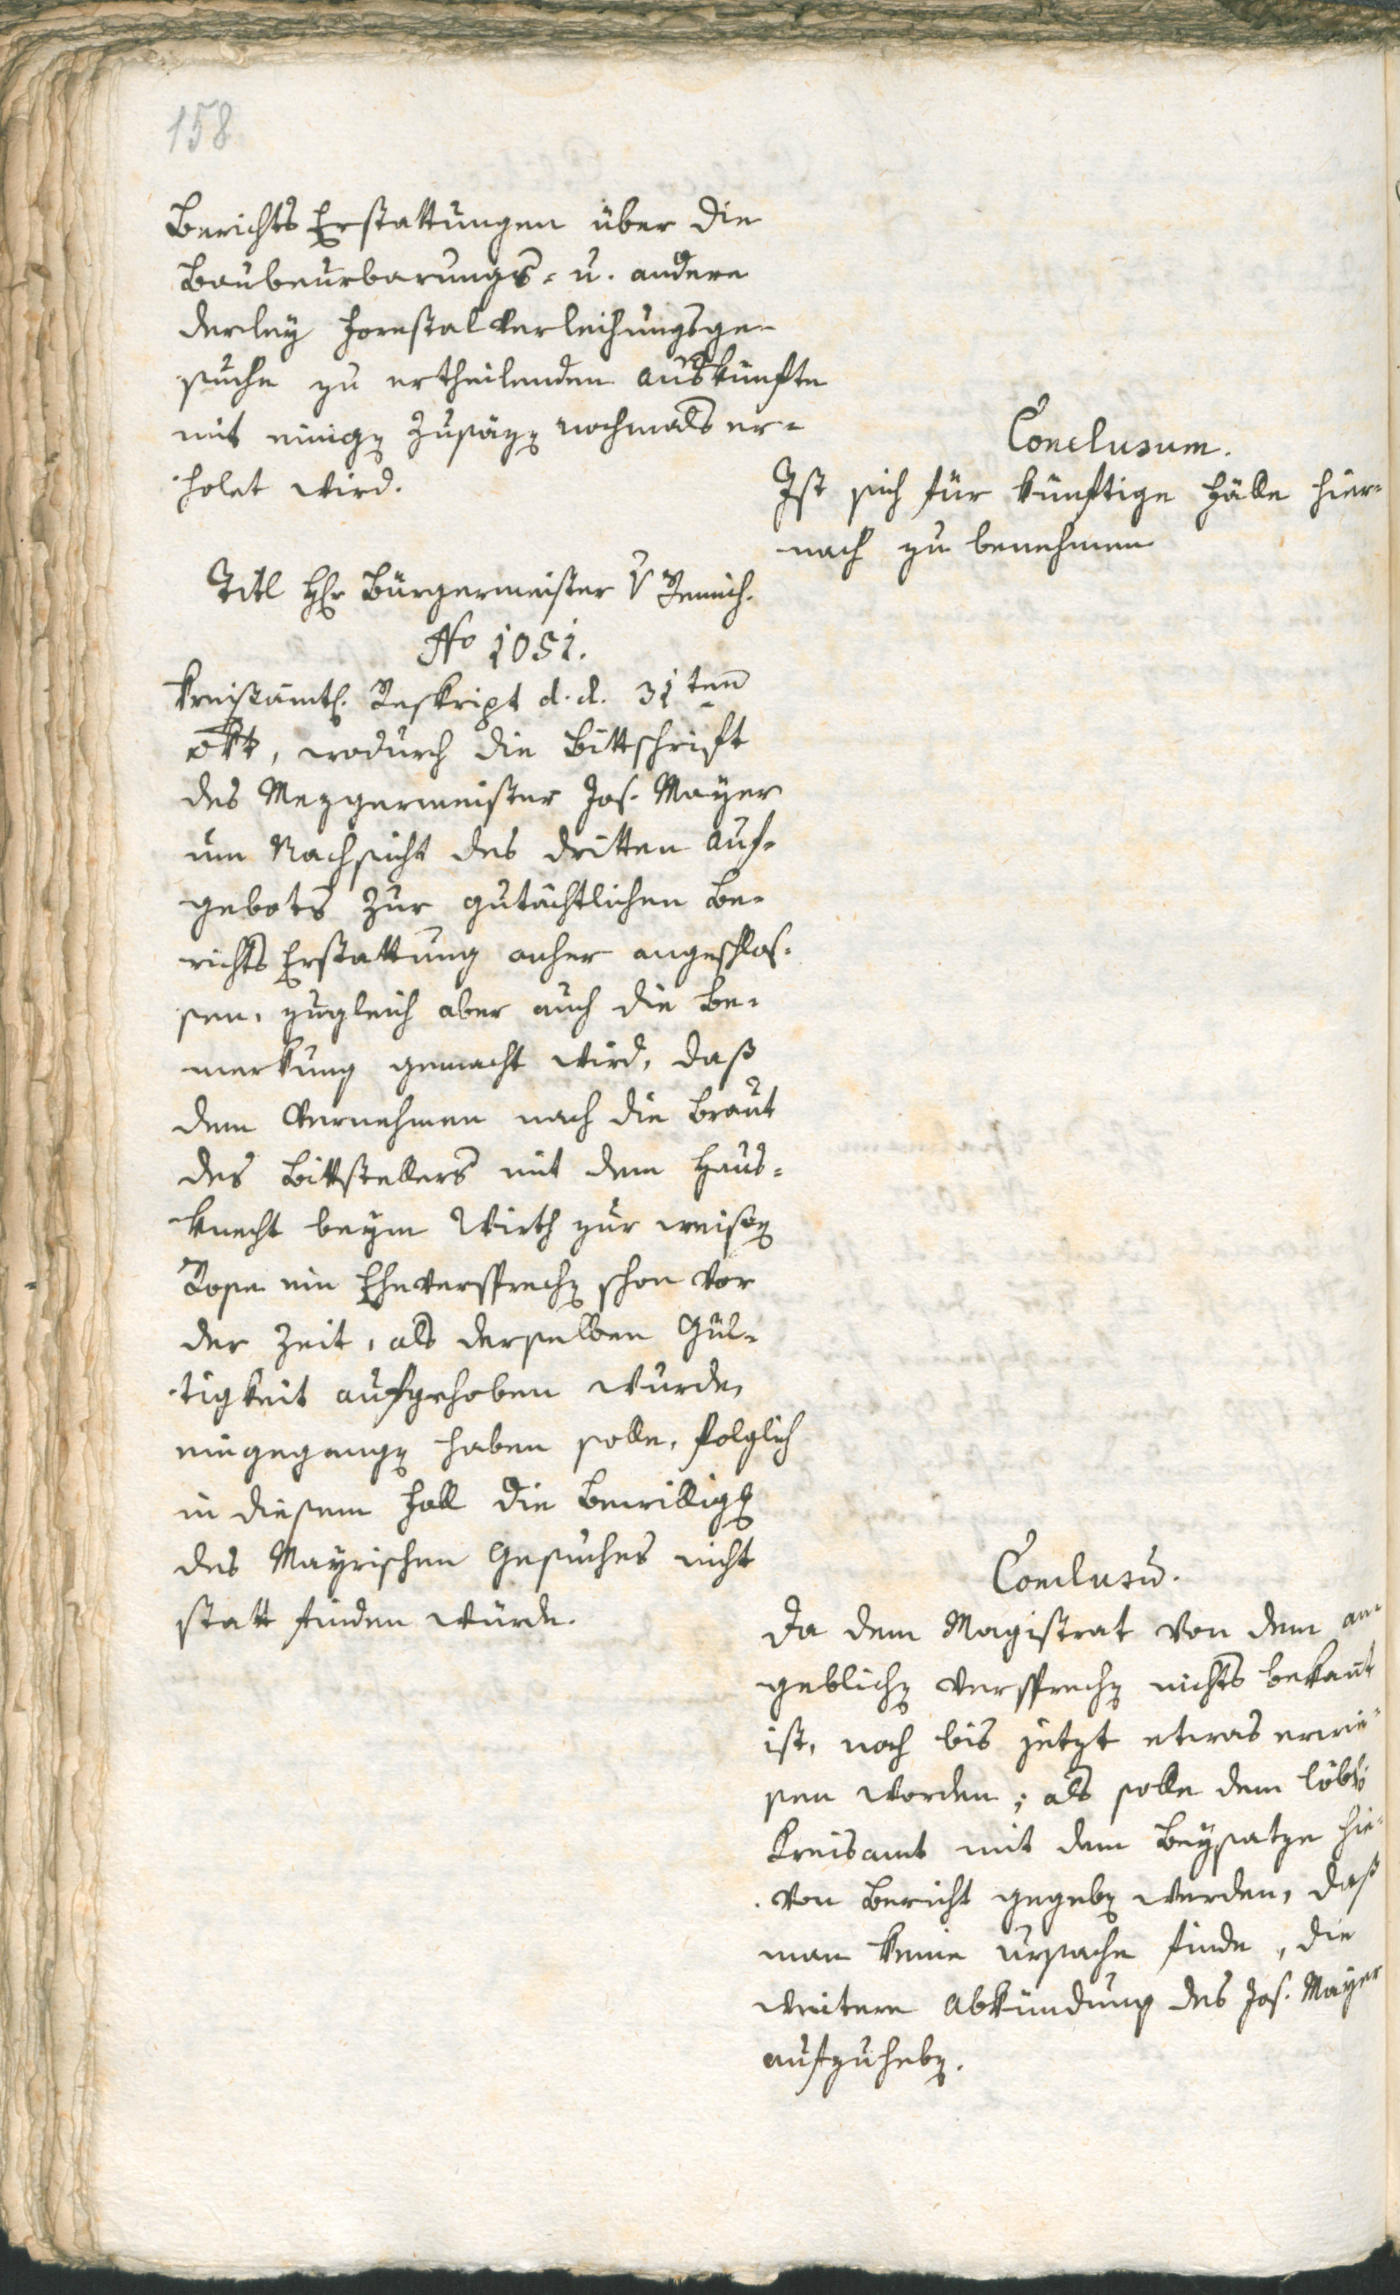 158
Berichts Erstattungen über die
Baubeurbarungs- u. andere
derley Forestal Verleihungsge-
suche zu ertheilenden Auskünfte
mit einigen Zusäzen nochmals er-
holet wird.
Conclusum.
Ist sich für künftige Fälle hier-
nach zu benehmen
Titl Hr Bürgermeister v
No 1051.
Kreisämtl. Reskript d. d. 31ten
okt, wodurch die Bittschrift
des Mezgermeister Jos. Mayer
um Nachsicht des dritten Auf-
gebots zur gutächtlichen Be-
richts Erstattung anher angeschlos-
sen, zugleich aber auch die Be-
merkung gemacht wird, daß
dem Vernehmen nach die Braut
des Bittstellers mit dem Haus-
knecht beym Wirth zur weißen
Rose ein Eheversprechen schon vor
der Zeit, als derselben Gül-
tigkeit aufgehoben wurde,
eingegangen haben solle, folglich
in diesem Fall die Bewilligg
des Mayrischen Gesuches nicht
statt finden würde.
Conclusū.
Da dem Magistrat von dem an-
geblichen Versprechen nichts bekañt
ist, noch bis jetzt etwas erwie-
sen worden; als solle dem löbl.
Kreisamt mit dem Beysatze hie-
von Bericht gegeben werden, daß
man keine Ursache finde, die
weitere Abkündung des Jos. Mayer
aufzuheben.